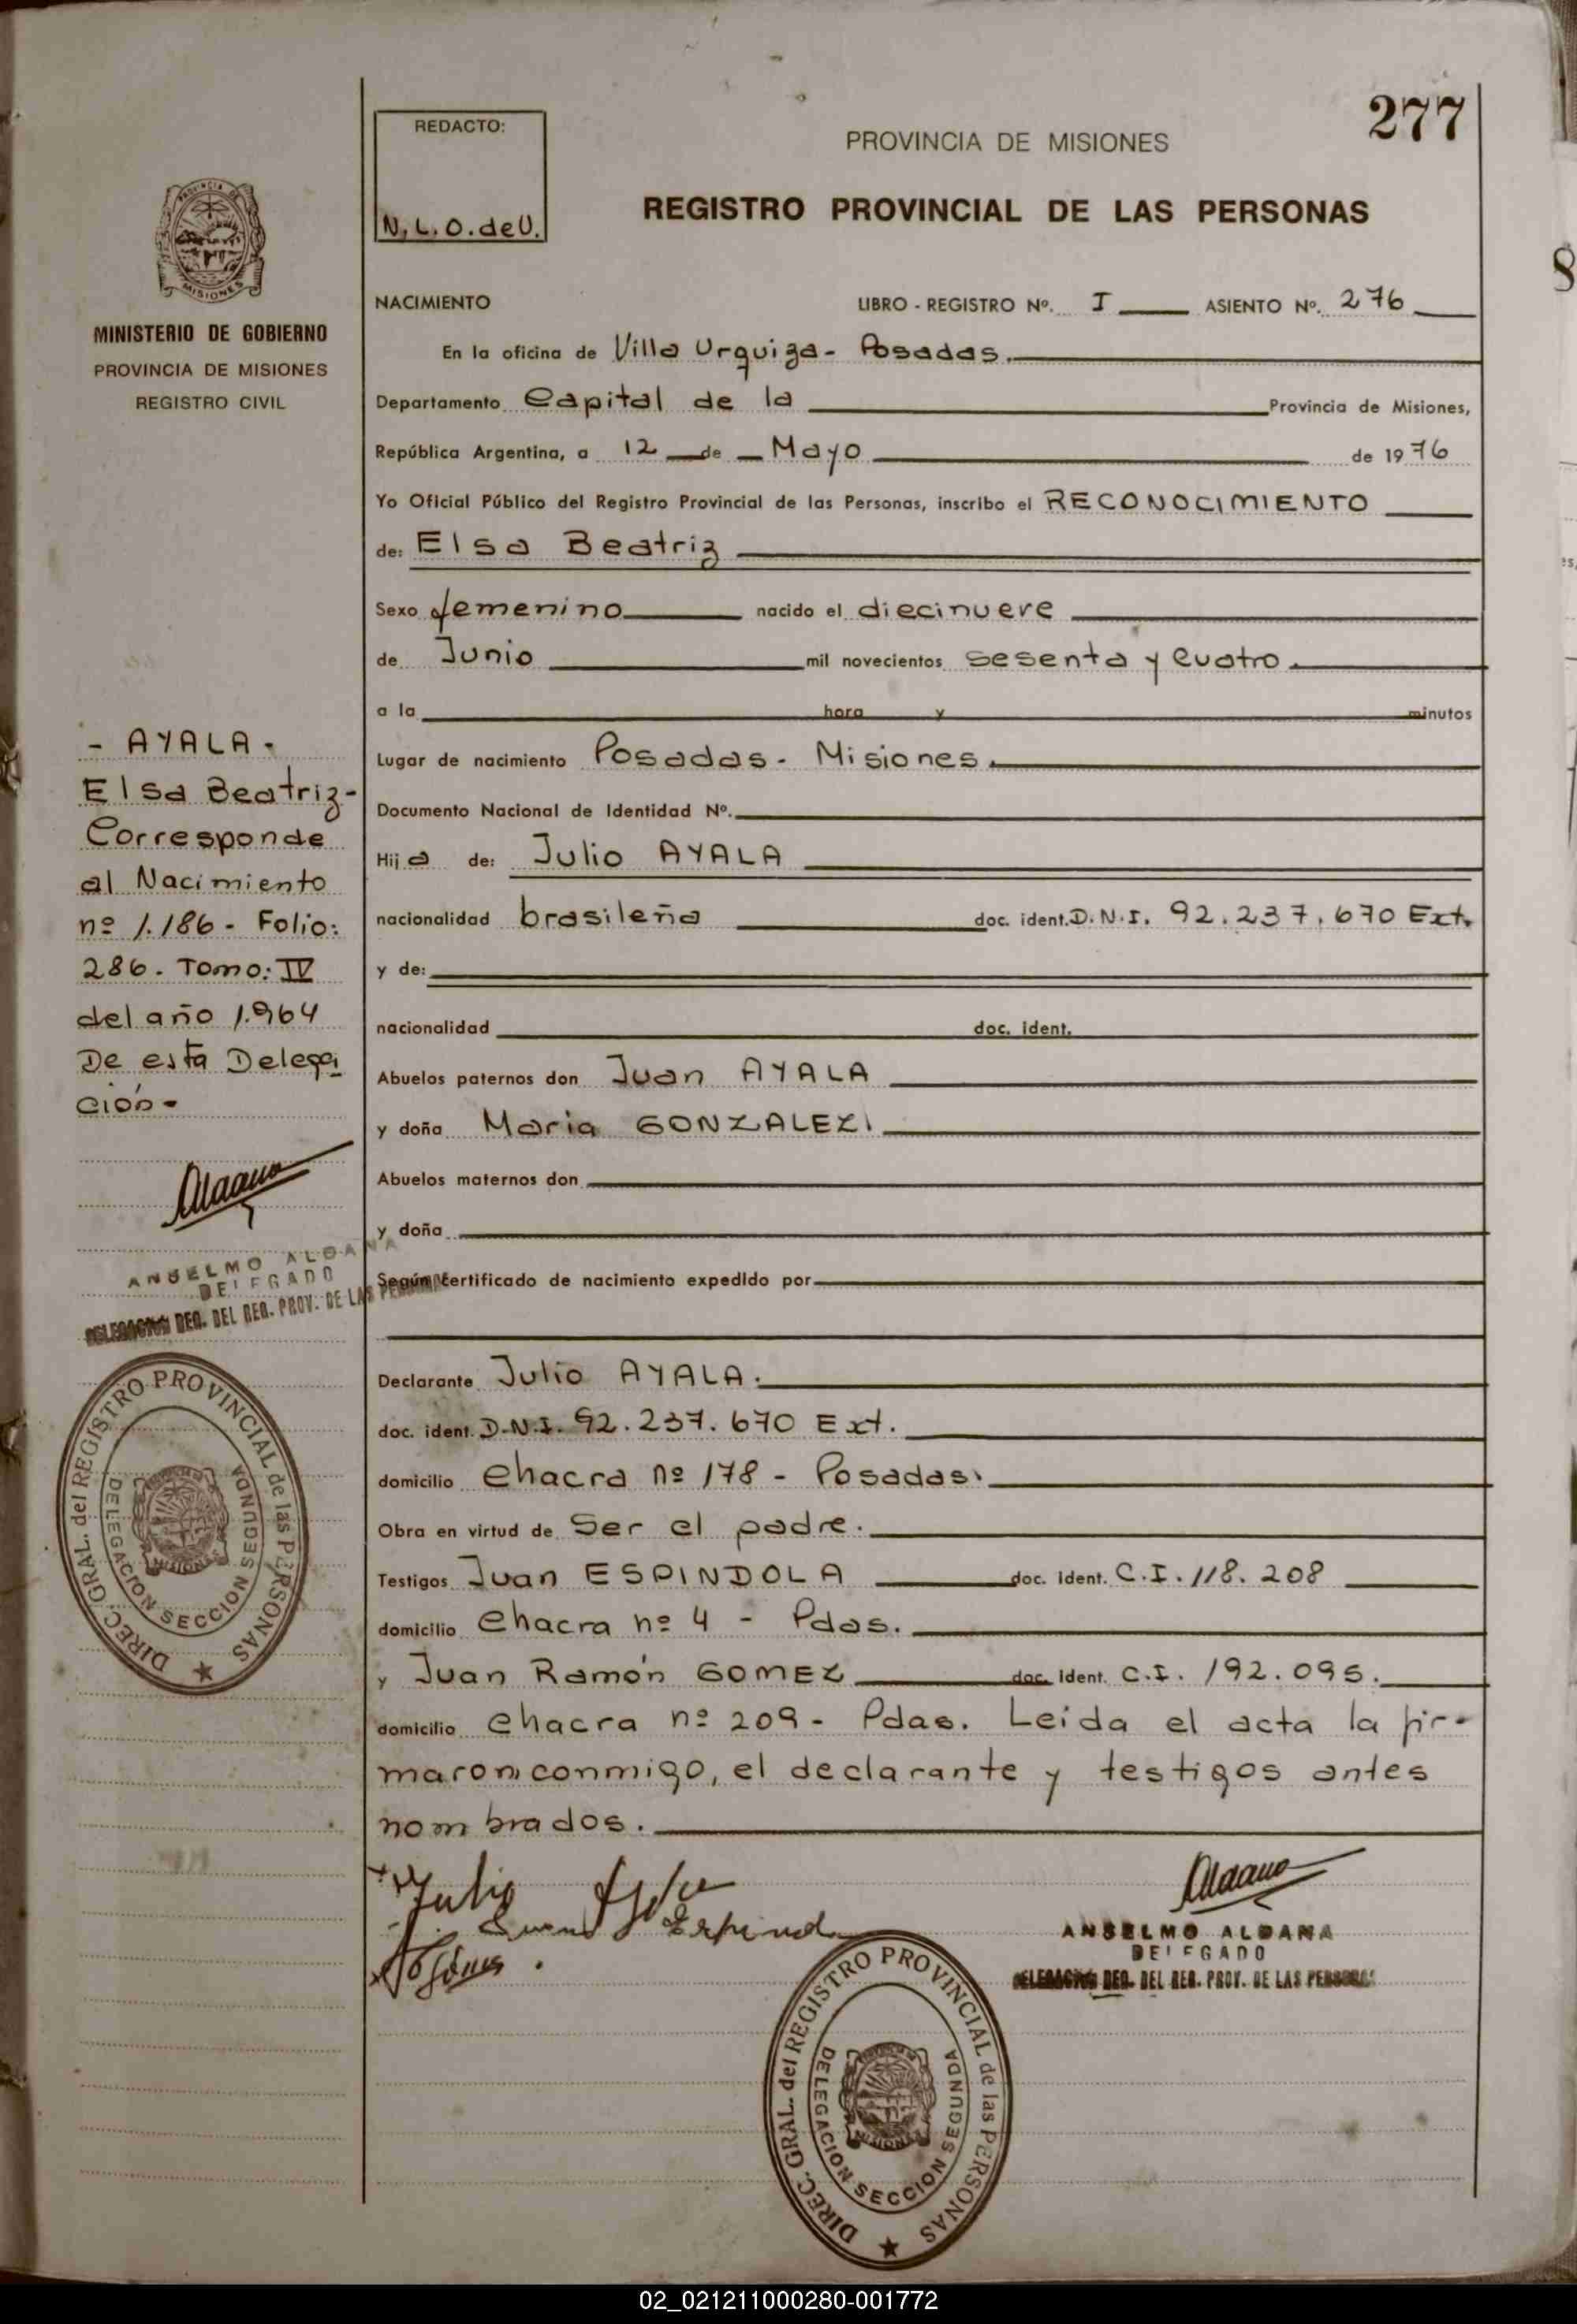 277
REDACTO:
N.L.O. de U.
PROVINCIA DE MISIONES
REGISTRO PROVINCIAL DE LAS PERSONAS
PROVINCIA DE
MISIONES
MINISTERIO DE GOBIERNO
PROVINCIA DE MISIONES
REGISTRO CIVIL
NACIMIENTO LIBRO - REGISTRO Nº. I ASIENTO Nº. 276
En la oficina de Villa Urquiza - Posadas.
Departamento Capital de la Provincia de Misiones,
República Argentina, a 12 de Mayo de 1976
Yo Oficial Público del Registro Provincial de las Personas, inscribo el RECONOCIMIENTO
de: Elsa Beatriz
Sexo femenino nacido el diecinueve
de Junio mil novecientos sesenta y cuatro.
a la hora y minutos
Lugar de nacimiento Posadas - Misiones.
Documento Nacional de Identidad Nº.
Hija de: Julio AYALA
nacionalidad brasileña doc. ident. D.N.I. 92.237.670 Ext.
y de:
nacionalidad doc. ident.
Abuelos paternos don Juan AYALA
y doña Maria GONZALEZ
Abuelos maternos don
y doña
Según certificado de nacimiento expedido por
Declarante Julio AYALA.
doc. ident. D.N.I. 92.237.670 Ext.
domicilio chacra nº 178 - Posadas.
Obra en virtud de Ser el padre.
Testigos Juan ESPINDOLA doc. ident. C.I. 118.208
domicilio chacra nº 4 - Pdas.
y Juan Ramón GOMEZ doc. ident. C.I. 192.095.
domicilio chacra nº 209 - Pdas. Leida el acta la fir-
maron conmigo, el declarante y testigos antes
nombrados.
- AYALA -
Elsa Beatriz-
Corresponde
al Nacimiento
nº 1.186 - Folio:
286. Tomo: IV
del año 1.964
De esta Delega
ción-
Aldana
ANSELMO ALDANA
DELEGADO
DELEGACION SEG. DEL REG. PROV. DE LAS PERSONAS
DIREC. GRAL. del REGISTRO PROVINCIAL de las PERSONAS
DELEGACION SECCION SEGUNDA
MISIONES
Julio Ayala
Juan Espind
Gómes
Aldana
ANSELMO ALDANA
DELEGADO
DELEGACION SEG. DEL REG. PROV. DE LAS PERSONAS
DIREC. GRAL. del REGISTRO PROVINCIAL de las PERSONAS
DELEGACION SECCION SEGUNDA
MISIONES
02_021211000280-001772